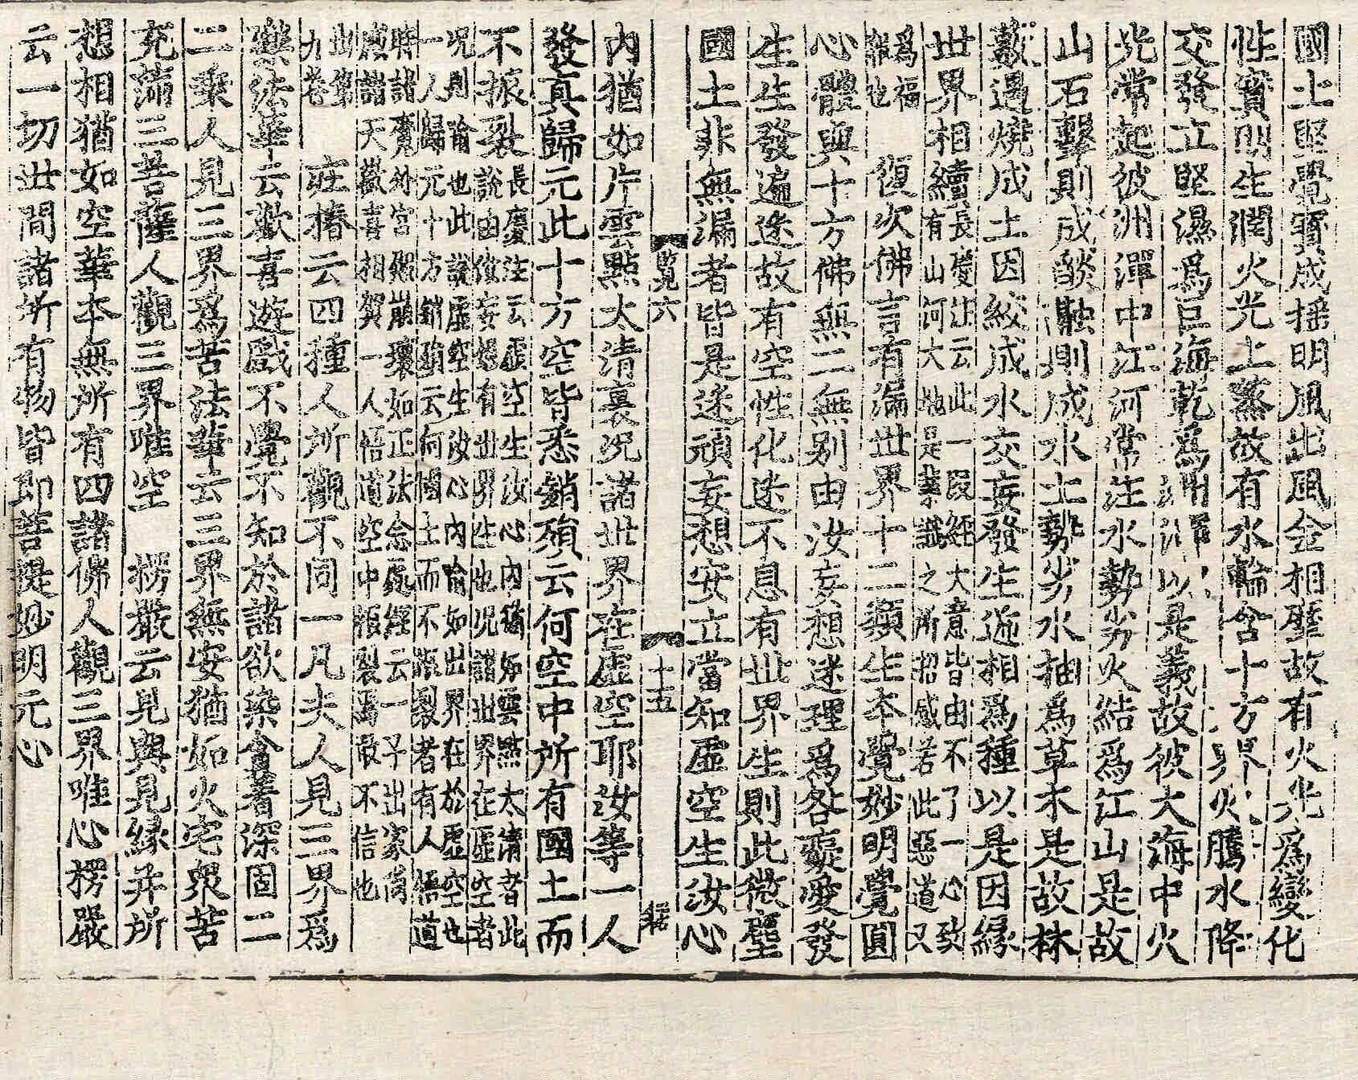 國土堅覺寶成搖明風出風金相摩故有火光爲變化
性寶明生潤火光上蒸故有水輪含十方界火騰水降
交發立堅濕爲巨海乾爲洲潬以是義故彼大海中火
光常起彼洲潬中江河常注水勢劣火結爲江山是故
山石擊則成燄融則成水土勢劣水抽爲草木是故林
藪遇燒成土因絞成水交妄發生遞相爲種以是因緣
世界相續長慶注云此一段經大意皆由不了一心致
有山河大地是業識之所招感若此惡道又
爲福
報也
復次佛言有漏世界十二類生本覺妙明覺圓
心體與十方佛無二無別由汝妄想迷理爲咎癡愛發
生生發遍迷故有空性化迷不息有世界生則此微塵
國土非無漏者皆是迷頑妄想安立當知虛空生汝心
覽六 十五
內猶如片雲點太清裏況諸世界在虛空耶汝等一人
發真歸元此十方空皆悉銷殞云何空中所有國土而
不振裂長慶注云虛空生汝心內猶如雲點太清者此
說由依妄想有世界性也況諸世界在虛空者
況則喻也此說虛空生汝心內喻如世界在於虛空也
一人歸元十方銷殞云何國土而不振裂者有人悟道
時諸魔外宮殿崩壞如正法念處經云一子出家萬
歲諸天歡喜相賀一人悟道空中振裂焉敢不信也
出第
九卷
莊椿云四種人所觀不同一凡夫人見三界爲
樂法華云歡喜遊戲不覺不知於諸欲染貪著深固二
二乘人見三界爲苦法華云三界無安猶如火宅衆苦
充滿三菩薩人觀三界唯空 楞嚴云見與見緣并所
想相猶如空華本無所有四諸佛人觀三界唯心楞嚴
云一切世間諸所有物皆即菩提妙明元心